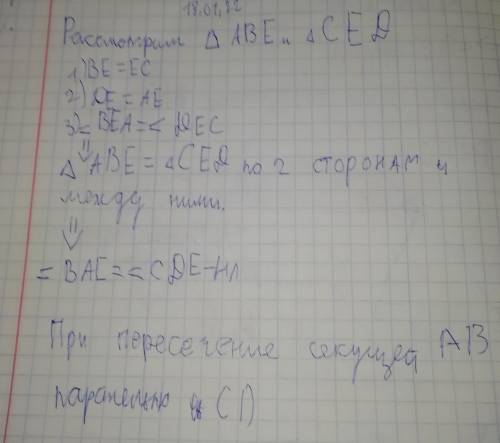 18.01.22
Рассмотрим Δ ABE и Δ CED
1) BE = EC
2) DE = AE
3) < BEA = < DEC
⇓
Δ ABE = Δ CED по 2 сторонам и
между ними.
⇓
< BAE = < CDE – НЛ
При пересечение секущей AB
CD